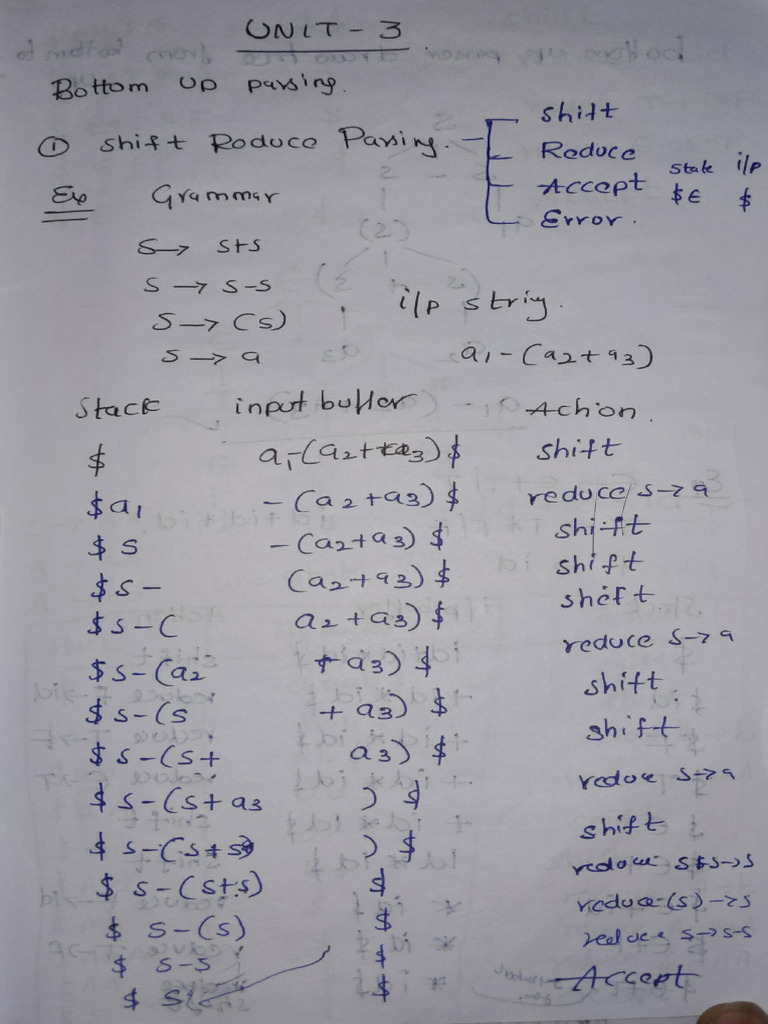 UNIT - 3
Bottom up parsing.
① Shift Reduce Parsing. - shift
Reduce
Accept
Error.
state i/p
$ε $
Ex Grammar
S → S+S
S → S-S
S → (S)
S → a
i/p string.
a1 - (a2 + a3)
Stack input buffer Action.
$ a1-(a2+a3)$ shift
$a1 -(a2+a3)$ reduce s→a
$ S -(a2+a3) $ shift
$ S- (a2+a3)$ shift
$ S-( a2+a3)$ shift
$ S-(a2 +a3) $ reduce S→a
$ S-(S + a3) $ shift
$ S-(S+ a3) $ shift
$ S-(S+a3 ) $ reduce S→a
$ S-(S+S ) $ shift
$ S-(S+S) $ reduce S+S→S
$ S-(S) $ reduce (S)→S
$ S-S $ reduce S→S-S
$ S $ Accept